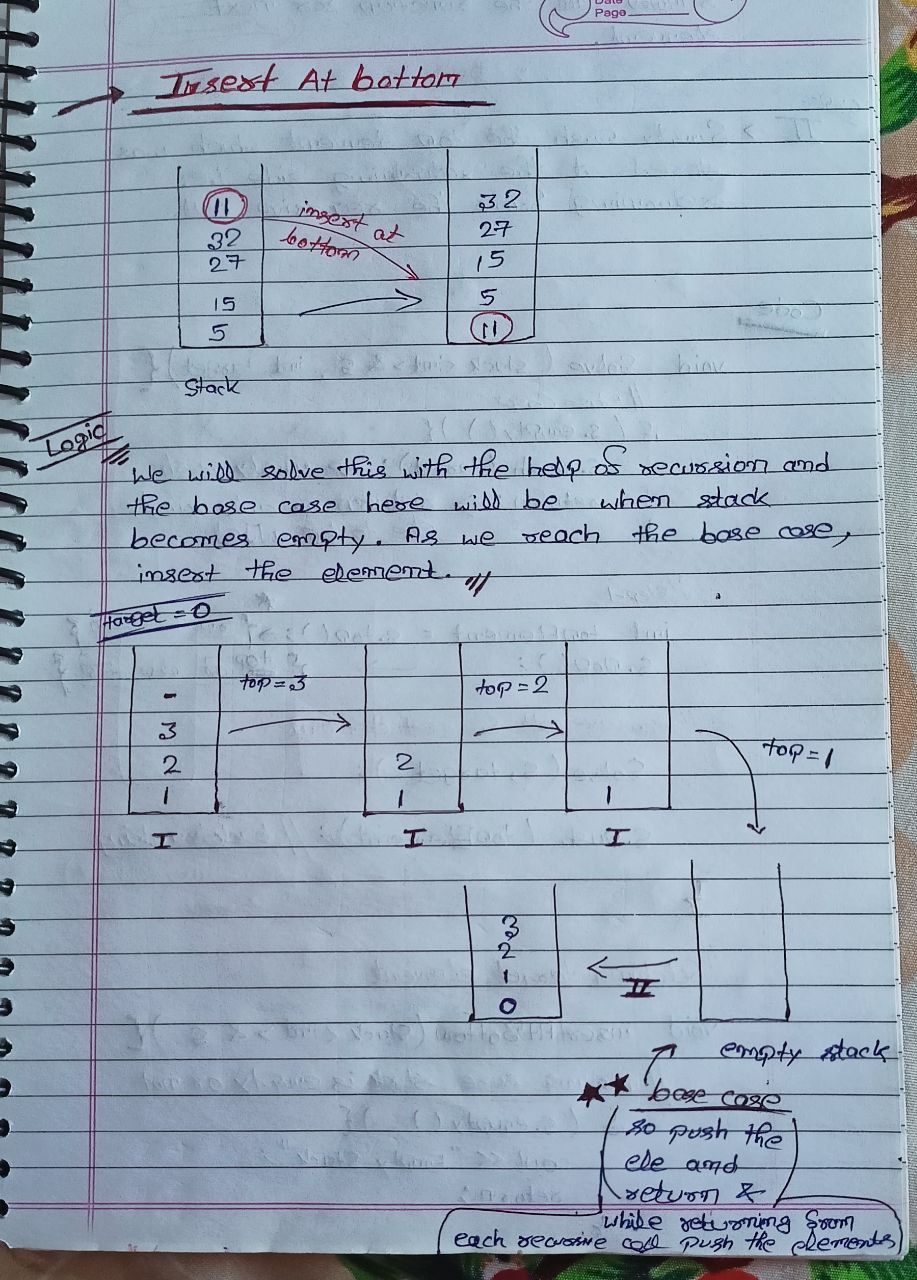 Page
Insert At bottom
11
32
27
15
5
Stack
insert at
bottom
32
27
15
5
11
Logic
We will solve this with the help of recursion and
the base case here will be when stack
becomes empty. As we reach the base case,
insert the element.
target = 0
-
3
2
1
I
top = 3
2
1
I
top = 2
1
I
top = 1
3
2
1
0
II
empty stack
base case
so push the
ele and
return &
while returning from
each recursive call push the elements